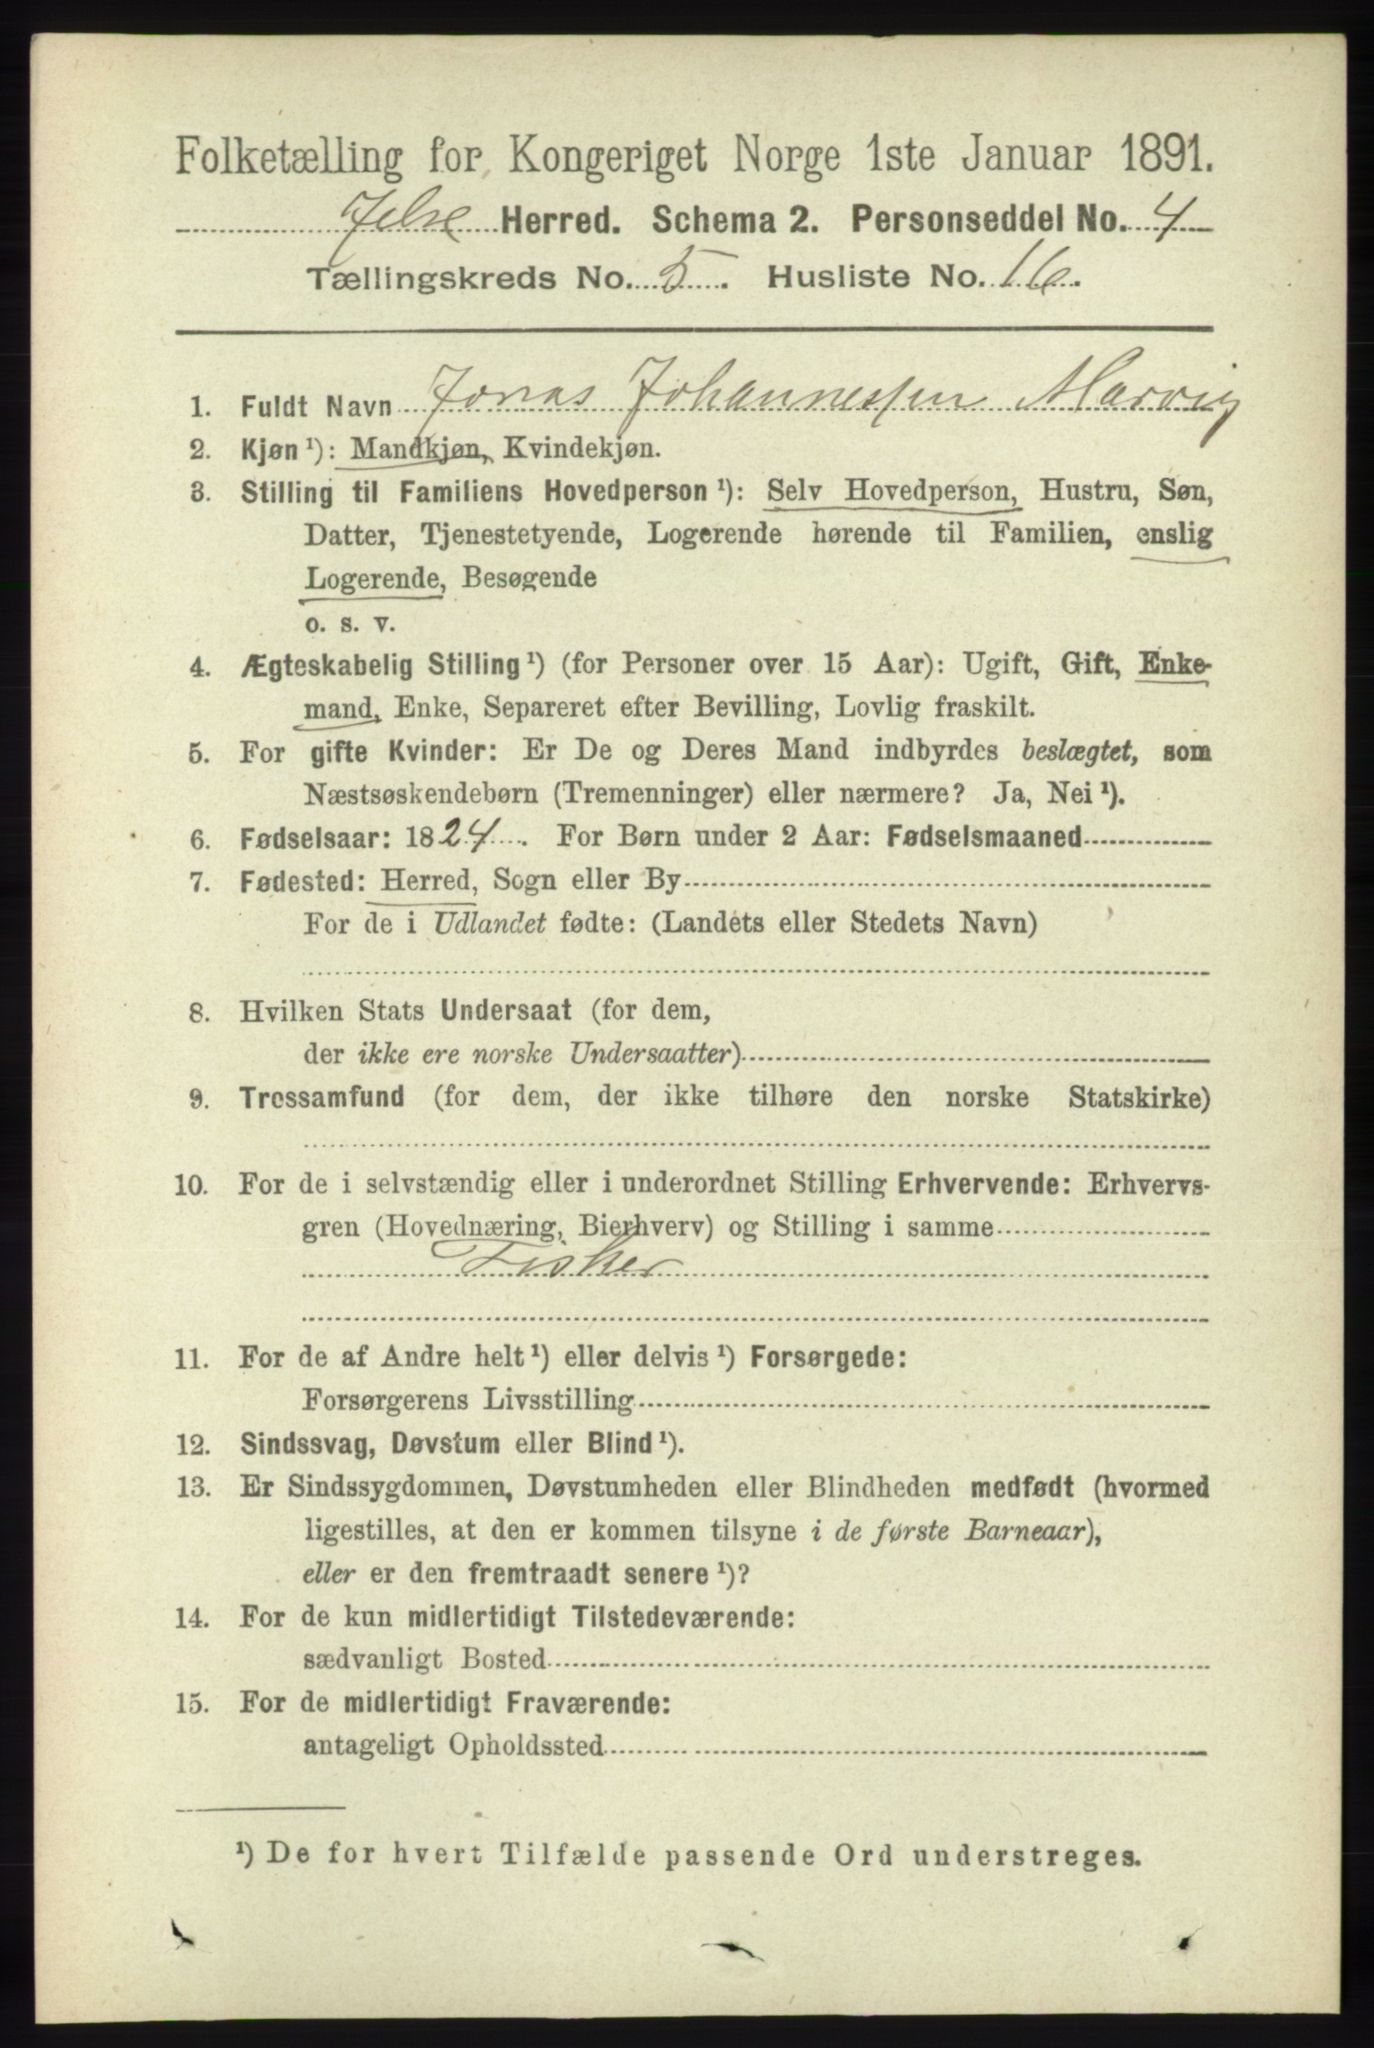 Folketælling for Kongeriget Norge 1ste Januar 1891.
Jelse Herred. Schema 2. Personseddel No. 4
Tællingskreds No. 5. Husliste No. 16.
1. Fuldt Navn Jonas Johannessen Marvig
2. Kjøn ¹): Mandkjøn, Kvindekjøn.
3. Stilling til Familiens Hovedperson ¹): Selv Hovedperson, Hustru, Søn,
Datter, Tjenestetyende, Logerende hørende til Familien, enslig
Logerende, Besøgende
o. s. v.
4. Ægteskabelig Stilling ¹) (for Personer over 15 Aar): Ugift, Gift, Enke-
mand, Enke, Separeret efter Bevilling, Lovlig fraskilt.
5. For gifte Kvinder: Er De og Deres Mand indbyrdes beslægtet, som
Næstsøskendebørn (Tremenninger) eller nærmere? Ja, Nei ¹).
6. Fødselsaar: 1824. For Børn under 2 Aar: Fødselsmaaned
7. Fødested: Herred, Sogn eller By
For de i Udlandet fødte: (Landets eller Stedets Navn)
8. Hvilken Stats Undersaat (for dem,
der ikke ere norske Undersaatter)
9. Trossamfund (for dem, der ikke tilhøre den norske Statskirke)
10. For de i selvstændig eller i underordnet Stilling Erhvervende: Erhvervs-
gren (Hovednæring, Bierhverv) og Stilling i samme
Fisker
11. For de af Andre helt ¹) eller delvis ¹) Forsørgede:
Forsørgerens Livsstilling
12. Sindssvag, Døvstum eller Blind ¹).
13. Er Sindssygdommen, Døvstumheden eller Blindheden medfødt (hvormed
ligestilles, at den er kommen tilsyne i de første Barneaar),
eller er den fremtraadt senere ¹)?
14. For de kun midlertidigt Tilstedeværende:
sædvanligt Bosted
15. For de midlertidigt Fraværende:
antageligt Opholdssted
¹) De for hvert Tilfælde passende Ord understreges.